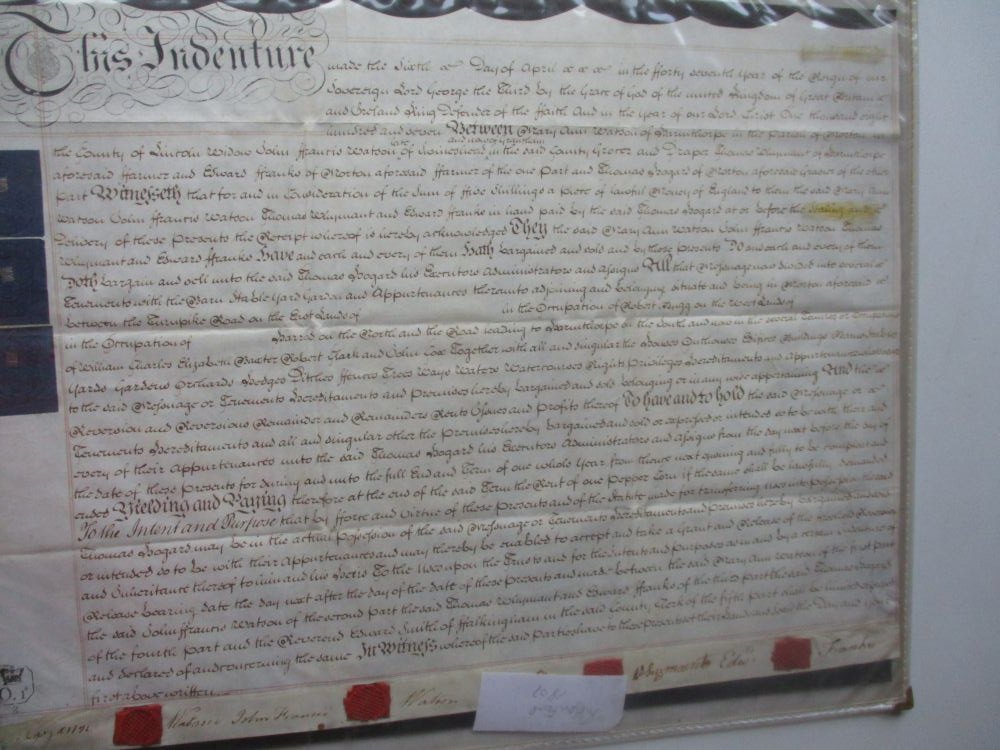 This Indenture made the Sixth Day of April in the fforty seventh Year of the Reign of our
Sovereign Lord George the Third by the Grace of God of the united Kingdom of Great Britain
and Ireland King Defender of the ffaith And in the Year of our Lord Christ One thousand eight
hundred and seven Between Mary Ann Watson of in the parish of Morton
late and now of Grantham
the County of Lincoln Widow John ffrancis Watson of in the said County Grocer and Draper Thomas of
aforesaid ffarmer and Edward ffranks of Morton aforesaid ffarmer of the one Part and Thomas of Morton aforesaid Grazier of the other
part Witnesseth that for and in Consideration of the Sum of ffive Shillings a piece of lawful Money of England to them the said Mary Ann
Watson John ffrancis Watson Thomas and Edward ffranks in hand paid by the said Thomas at or before the Sealing and
Delivery of these Presents the Receipt whereof is hereby acknowledged They the said Mary Ann Watson John ffrancis Watson Thomas
and Edward ffranks Have and each and every of them Hath bargained and sold and by these presents Do and each and every of them
Doth bargain and sell unto the said Thomas his Executors Administrators and assigns All that Messuage now divided into several
Tenements with the Barn Stable Yard Garden and Appurtenances thereunto adjoining and belonging situate and being in Morton aforesaid
between the Turnpike Road on the East Lands of in the Occupation of Robert Bugg on the West Lands of
in the Occupation of on the North and the Road leading to on the South and now in the several Tenures or Occupations
of William Charles Elizabeth Baxter Robert Clark and John Cox Together with all and singular the Houses Outhouses Edifices Buildings Barns Stables
Yards Gardens Orchards Hedges Ditches ffences Trees Ways Waters Watercourses Rights Privileges Hereditaments and Appurtenances whatsoever
to the said Messuage or Tenements Hereditaments and Premises hereby bargained and sold belonging or in any wise appertaining And the
Reversion and Reversions Remainder and Remainders Rents Issues and Profits thereof To have and to hold the said Messuage or
Tenements Hereditaments and all and singular other the Premises hereby bargained and sold or expressed or intended so to be with their and
every of their Appurtenances unto the said Thomas his Executors Administrators and assigns from the day next before the day of
the date of these Presents for during and unto the full End and Term of one whole Year from thence next ensuing and fully to be compleat and
ended Yielding and Paying therefore at the end of the said Term the Rent of one Pepper Corn if the same shall be lawfully demanded
To the Intent and Purpose that by fforce and Virtue of these Presents and of the Statute made for transferring Uses into Possession the said
Thomas may be in the actual Possession of the said Messuage or Tenements Hereditaments and Premises hereby bargained and sold
or intended so to be with their Appurtenances and may thereby be enabled to accept and take a Grant and Release of the Reversion
and Inheritance thereof to him and his Heirs To the Uses upon the Trusts and for the Intents and Purposes as in and by a certain Indenture of
Release bearing date the day next after the day of the date of these Presents and made between the said Mary Ann Watson of the first part
the said John ffrancis Watson of the second part the said Thomas and Edward ffranks of the third part the said Thomas
of the fourth Part and the Reverend Edward Smith of ffalkingham in the said County Clerk of the fifth part shall be
and declared of and concerning the same In Witness whereof the said Parties have to these presents set their Hands and Seals the Day and Year
first above written
Watson John Francis Watson Edwd. Franks